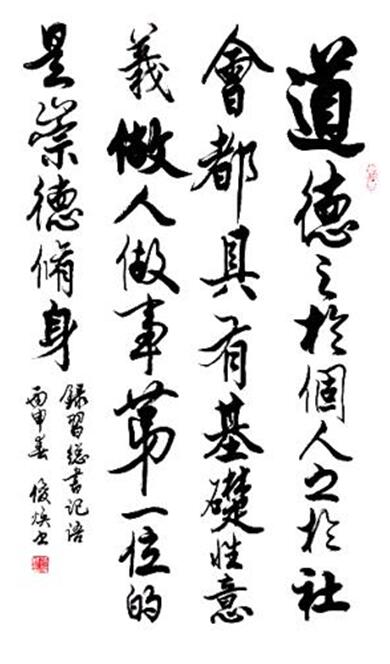 道德之於個人之於社
會都具有基礎性意
義做人做事第一位的
是崇德脩身
録習總書記語
丙申春 俊煥書